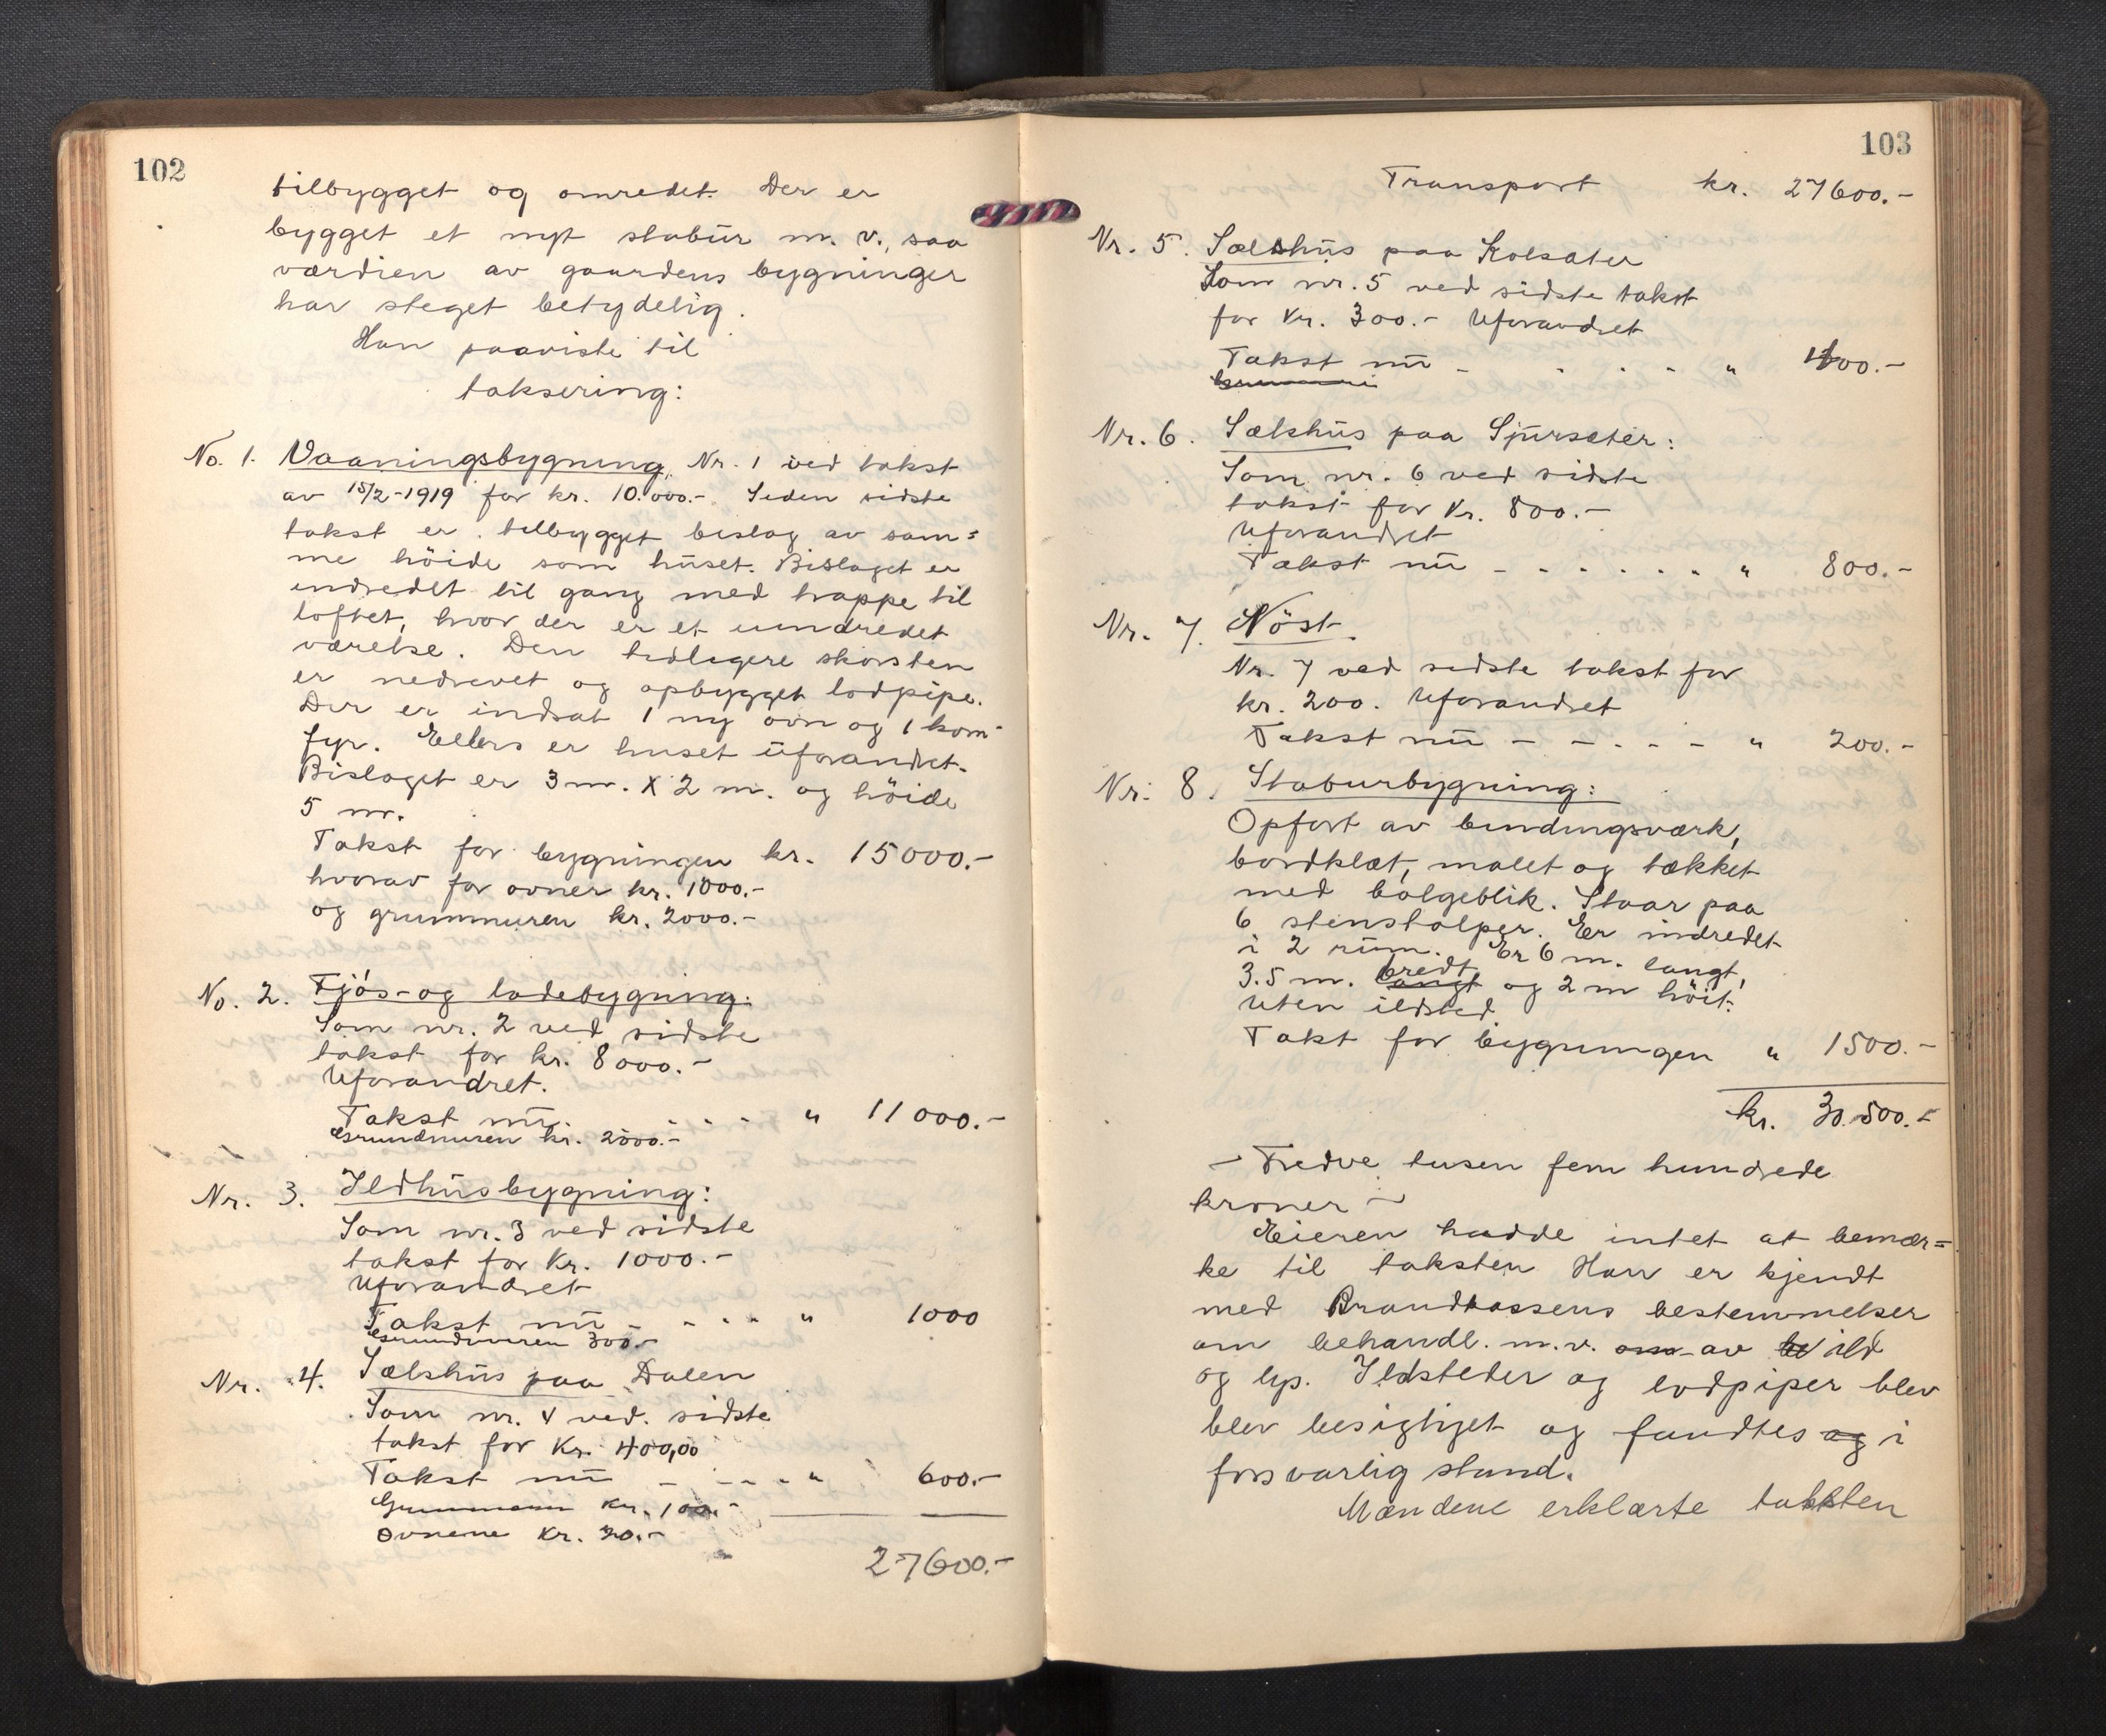 102
tilbygget og omredet. Der er
bygget et nyt stabur m. v., saa
værdien av gaardens bygninger
har steget betydelig.
Han paaviste til
taksering:
No. 1. Vaaningsbygning. Nr. 1 ved takst
av 15/2-1919 for kr. 10.000.- Siden sidste
takst er tilbygget beslag av sam=
me höide som huset. Bislaget er
indredet til gang med trappe til
loftet, hvor der er et uindredet
værelse. Den tidligere skorsten
er nedrevet og opbygget lodpipe.
Der er indsat 1 ny ovn og 1 kom-
fyr. Ellers er huset uforandret.
Bislaget er 3 m. X 2 m. og höide
5 m.
Takst for bygningen kr. 15000.-
hvorav for ovner kr. 1000.-
og grunmuren kr. 2000.-
No. 2. Fjös- og ladebygning.
Som nr. 2 ved sidste
takst for kr. 8000.-
Uforandret.
Takst nu. - - - " 11000.-
Grundmuren kr. 2000.-
Nr. 3. Ildhusbygning:
Som nr. 3 ved sidste
takst for Kr. 1000.-
Uforandret
Takst nu - - - - " 1000
Grundmuren 300.-
Nr. 4. Sælshus paa Dalen
Som nr. 4 ved. sidste
takst for Kr. 400,00
Takst nu - - - - " 600.-
Grunmuren Kr. 100.-
Ovnene Kr. 20.-
27600.-
103
Transport kr. 27600.-
Nr. 5. Sælshus paa Kolsæter
Som nr. 5 ved sidste takst
for Kr. 300.- Uforandret
Takst nu - - - - - " 400.-
Nr. 6. Sælshus paa Sjursæter:
Som nr. 6 ved sidste
takst for Kr. 800.-
Uforandret
Takst nu - - - - - - " 800.-
Nr. 7. Nöst.
Nr. 7 ved sidste takst for
kr. 200. Uforandret
Takst nu - - - - - " 200.-
Nr. 8. Staburbygning:
Opfört av bindingsværk,
bordklæt, malet og tækket
med bölgeblik. Staar paa
6 stenstolper. Er indredet
i 2 rum. Er 6 m. langt,
3.5 m. langt bredt og 2 m höit.
Uten ildsted
Takt for bygningen " 1500.-
kr. 30.500.-
- Tredve tusen fem hundrede
kroner -
Eieren hadde intet at bemær=
ke til taksten Han er kjendt
med Brandkassens bestemmelser
om behandl. m.v. om av ild
og lys. Ildsteder og lodpiper blev
blev besigtiget og fandtes og i
forsvarlig stand.
Mændene erklærte taksten